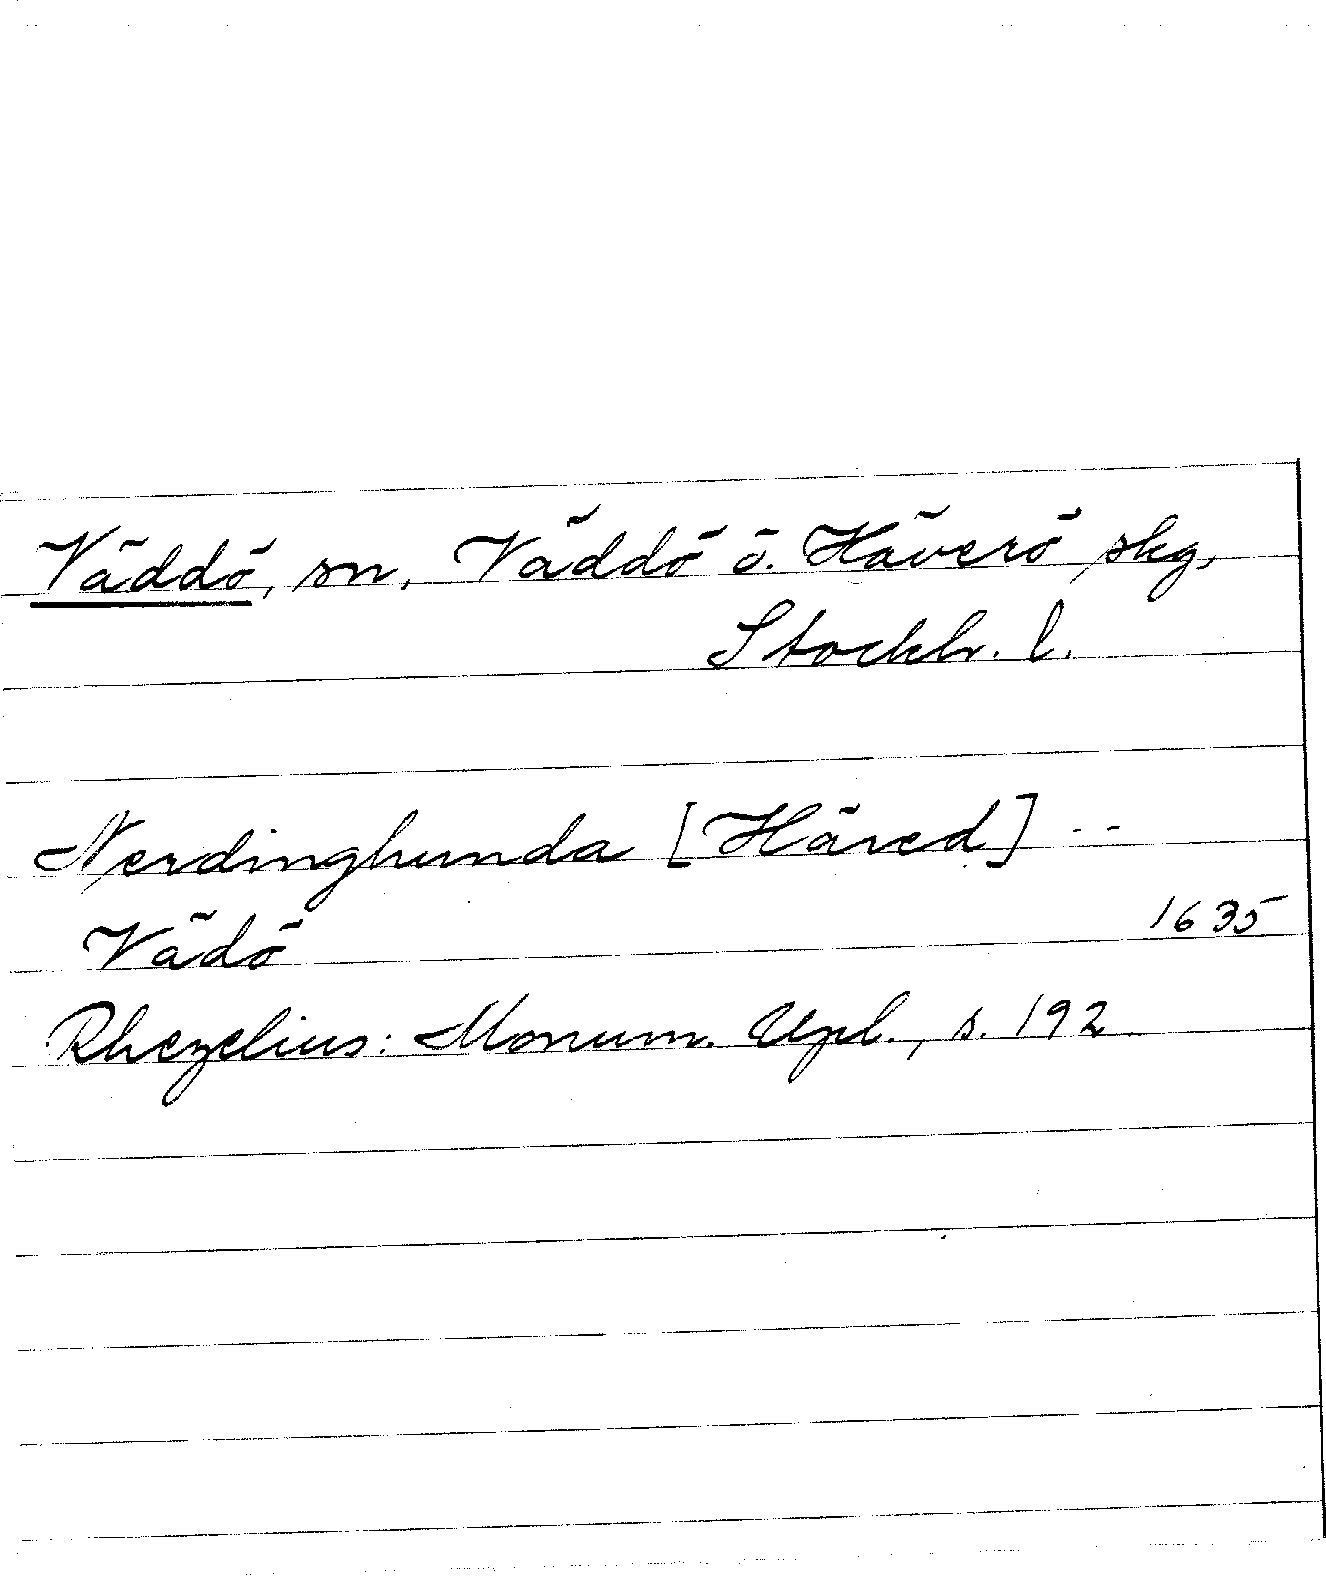 Väddö, sn, Väddö o. Häverö skg,
Stockh. l.
Nerdinghunda [Häred] --
Vädö 1635
Rhezelius: Monum. Upl., s. 192